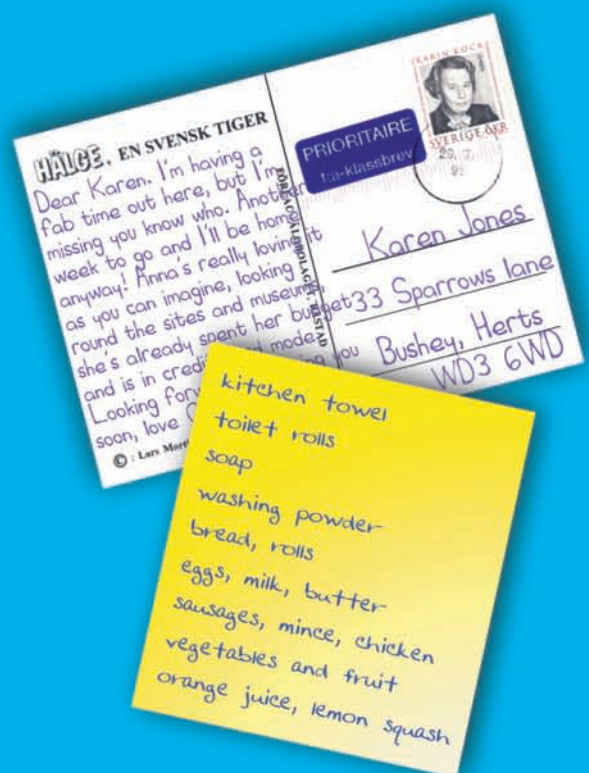 HÄLGE, EN SVENSK TIGER
Dear Karen. I'm having a
fab time out here, but I'm
missing you know who. Another
week to go and I'll be home
anyway! Anna's really loving it
as you can imagine, looking
round the sites and museums
she's already spent her budget
and is in credit mode
Looking you
soon, love
© : Lars
PRIORITAIRE
1:a-klassbrev
KARIN KOCK
SVERIGE 6KR
Karen Jones
33 Sparrows lane
Bushey, Herts
WD3 6WD
kitchen towel
toilet rolls
soap
washing powder
bread, rolls
eggs, milk, butter
sausages, mince, chicken
vegetables and fruit
orange juice, lemon squash